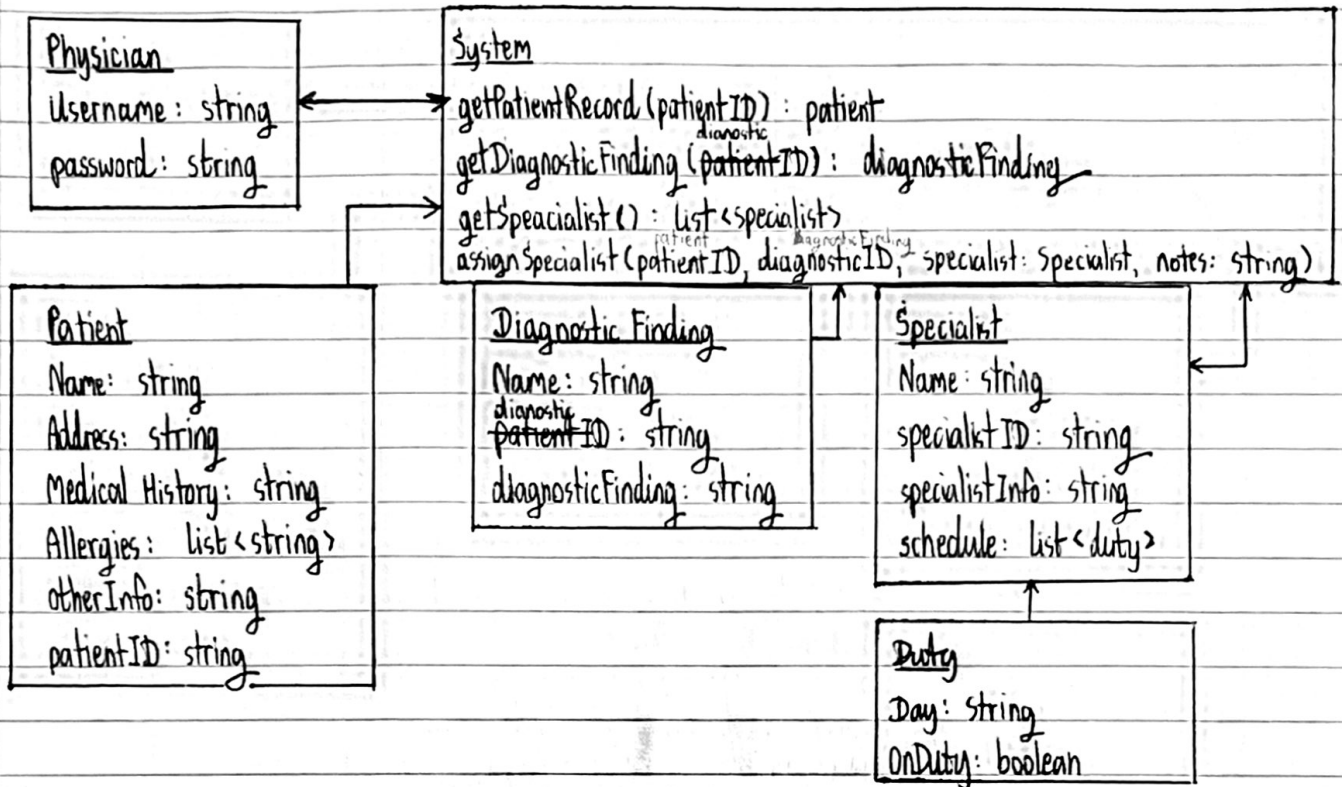 Physician
Username: string
password: string
System
getPatientRecord(patientID): patient
dianostic
getDiagnosticFinding(patientID): diagnosticFinding
getSpeacialist(): list<specialist>
patient diagnosticFinding
assignSpecialist(patientID, diagnosticID, specialist: Specialist, notes: string)
Patient
Name: string
Address: string
Medical History: string
Allergies: list<string>
otherInfo: string
patientID: string
Diagnostic Finding
Name: string
dianostic
patientID: string
diagnosticFinding: string
Specialist
Name: string
specialistID: string
specialistInfo: string
schedule: list<duty>
Duty
Day: string
OnDuty: boolean